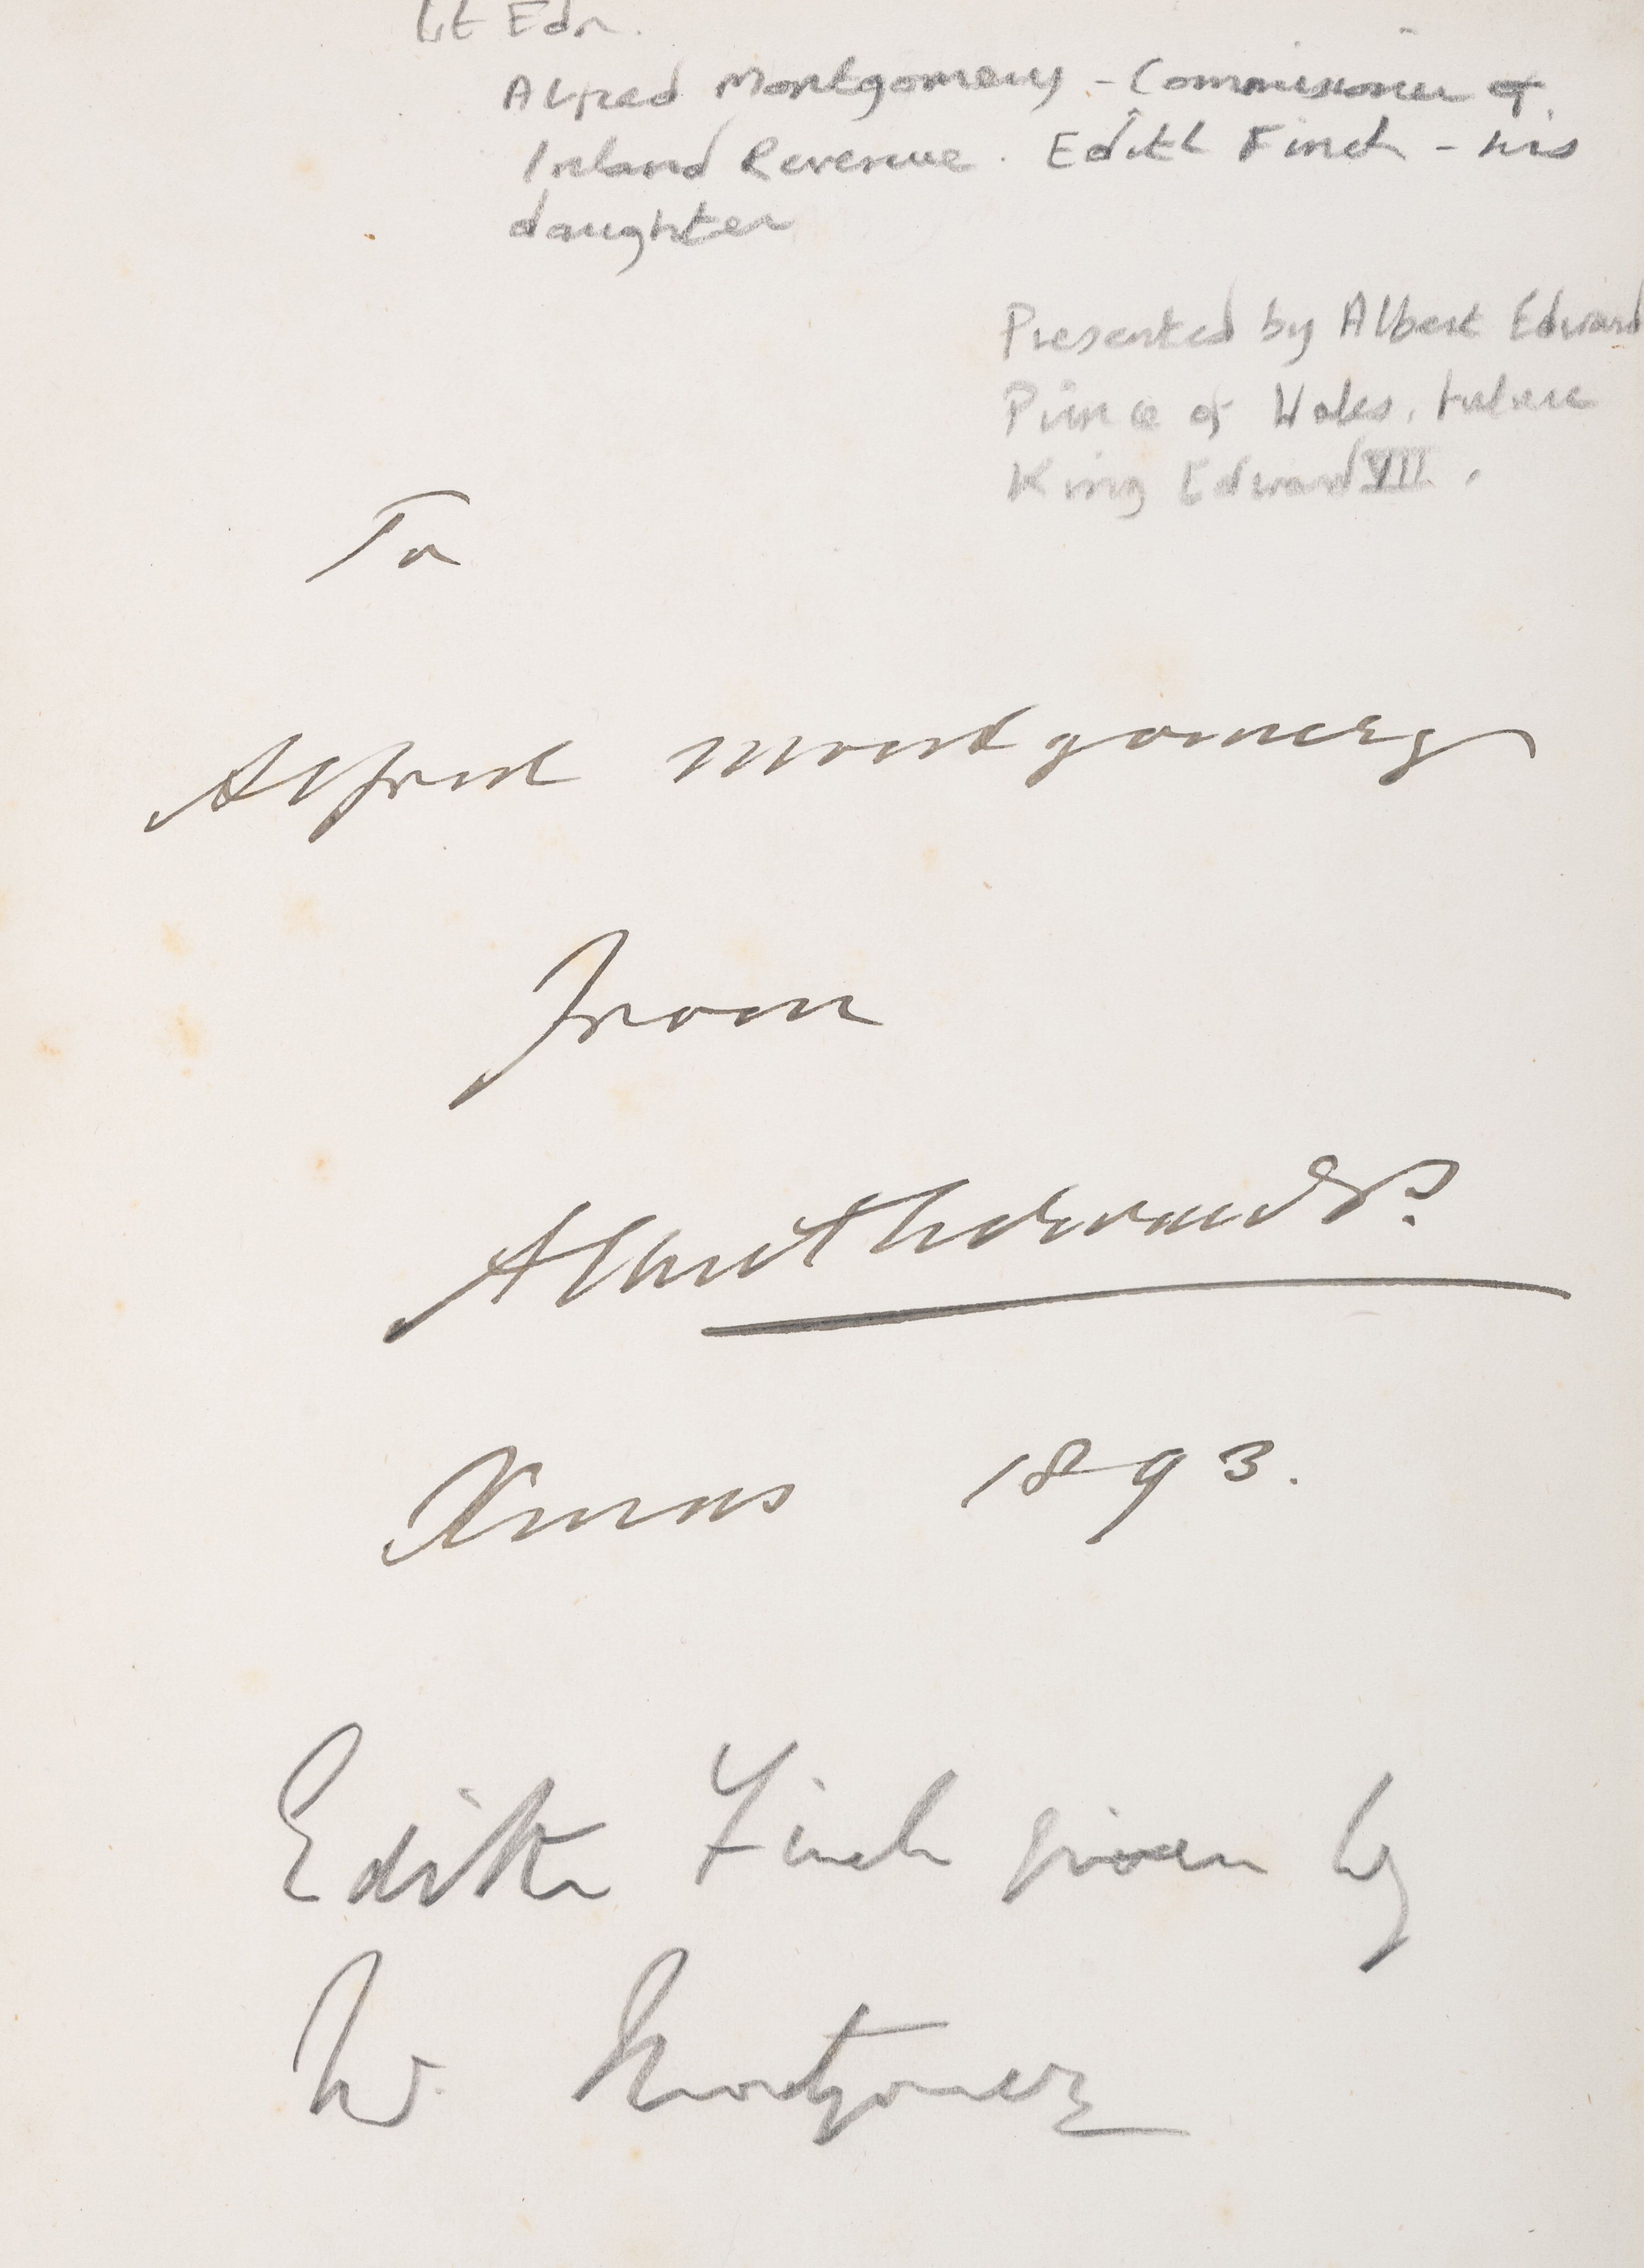 Lt Edn.
Alfred Montgomery - Commissioner of
Inland Revenue. Edith Finch - his
daughter
Presented by Albert Edward
Prince of Wales, future
King Edward VII.
To
Alfred Montgomery
From
Albert Edward P.
Xmas 1893.
Edith Finch given by
W. Montgomery